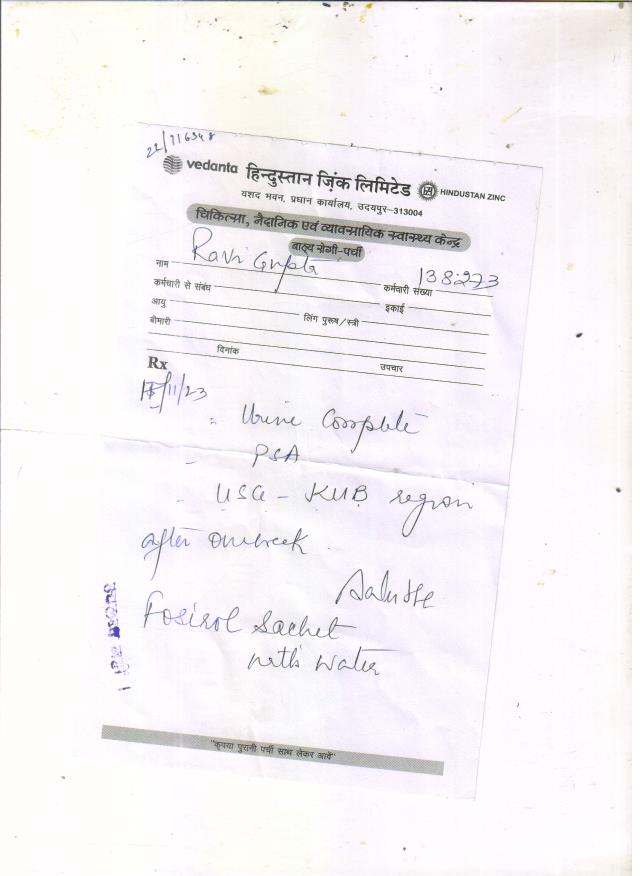 22/116348
vedanta हिन्दुस्तान ज़िंक लिमिटेड HINDUSTAN ZINC
यशद भवन, प्रधान कार्यालय, उदयपुर–313004
चिकित्सा, नैदानिक एवं व्यावसायिक स्वास्थ्य केन्द्र
बाह्य रोगी-पर्ची
नाम Ravi Gupta कर्मचारी संख्या 138273
कर्मचारी से संबंध इकाई
आयु लिंग पुरूष/स्त्री
बीमारी
दिनांक उपचार
Rx
/11/23
- Urine Complete
- PSA
- USG - KUB region
after one week
Fosirol Sachet
with water
"कृपया पुरानी पर्ची साथ लेकर आवें"